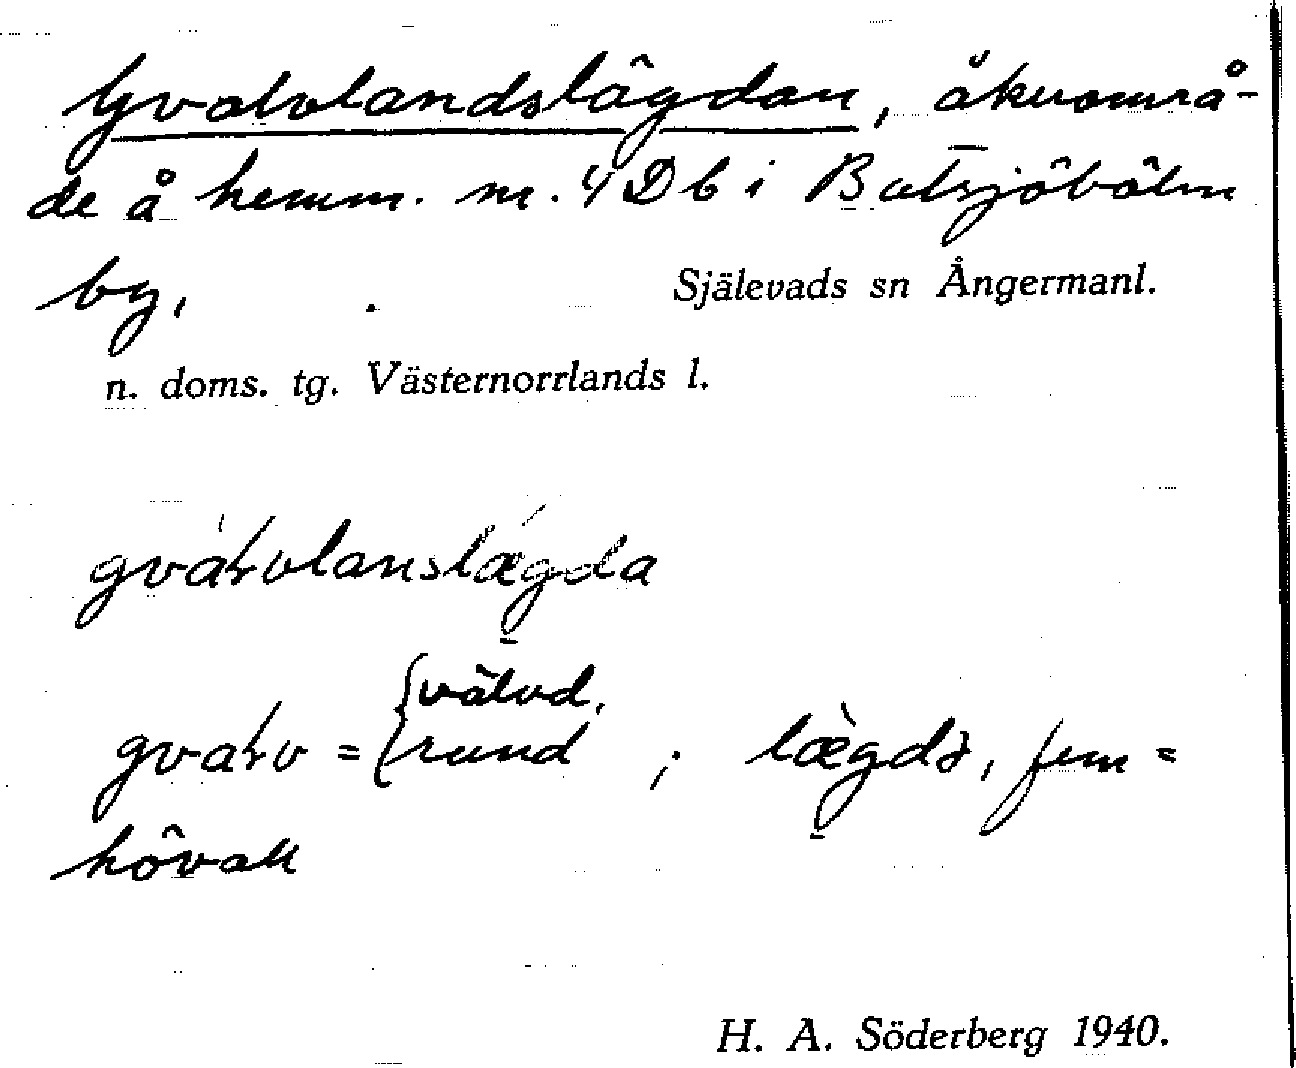 Gvalvlandslägdan, åkerområ-
de å hemm. nr. 4 Db i Butsjöbölen
by,
Själevads sn Ångermanl.
n. doms. tg. Västernorrlands l.
gvaɽvlanslægda
gvaɽv = { välvd, rund ; lægdə, fem =
hövall
H. A. Söderberg 1940.